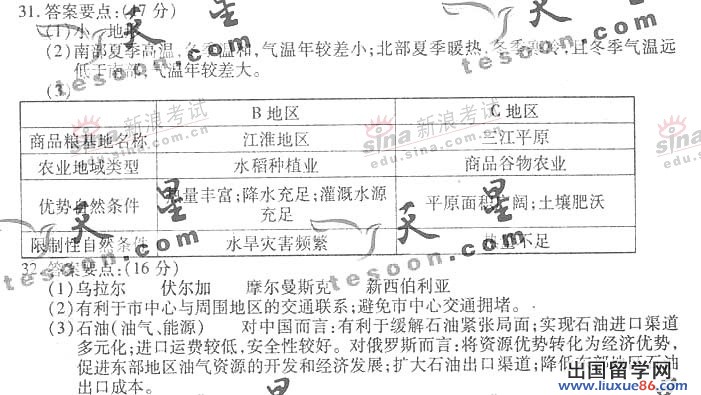 31. 答案要点:(17 分)
(1)小 地
(2)南部夏季高温,冬季温和,气温年较差小;北部夏季暖热,冬季寒冷,且冬季气温远
低于南部,气温年较差大。
(3)
B 地区 C 地区
商品粮基地名称 江淮地区 三江平原
农业地域类型 水稻种植业 商品谷物农业
优势自然条件 热量丰富;降水充足;灌溉水源充足 平原面积广阔;土壤肥沃
限制性自然条件 水旱灾害频繁 热量不足
32. 答案要点:(16 分)
(1)乌拉尔 伏尔加 摩尔曼斯克 新西伯利亚
(2)有利于市中心与周围地区的交通联系;避免市中心交通拥堵。
(3)石油(油气、能源) 对中国而言:有利于缓解石油紧张局面;实现石油进口渠道
多元化;进口运费较低,安全性较好。对俄罗斯而言:将资源优势转化为经济优势,
促进东部地区油气资源的开发和经济发展;扩大石油出口渠道;降低东部地区石油
出口成本。
天星
tesoon.com
sina 新浪考试
edu.sina.com.cn
出国留学网
www.liuxue86.com